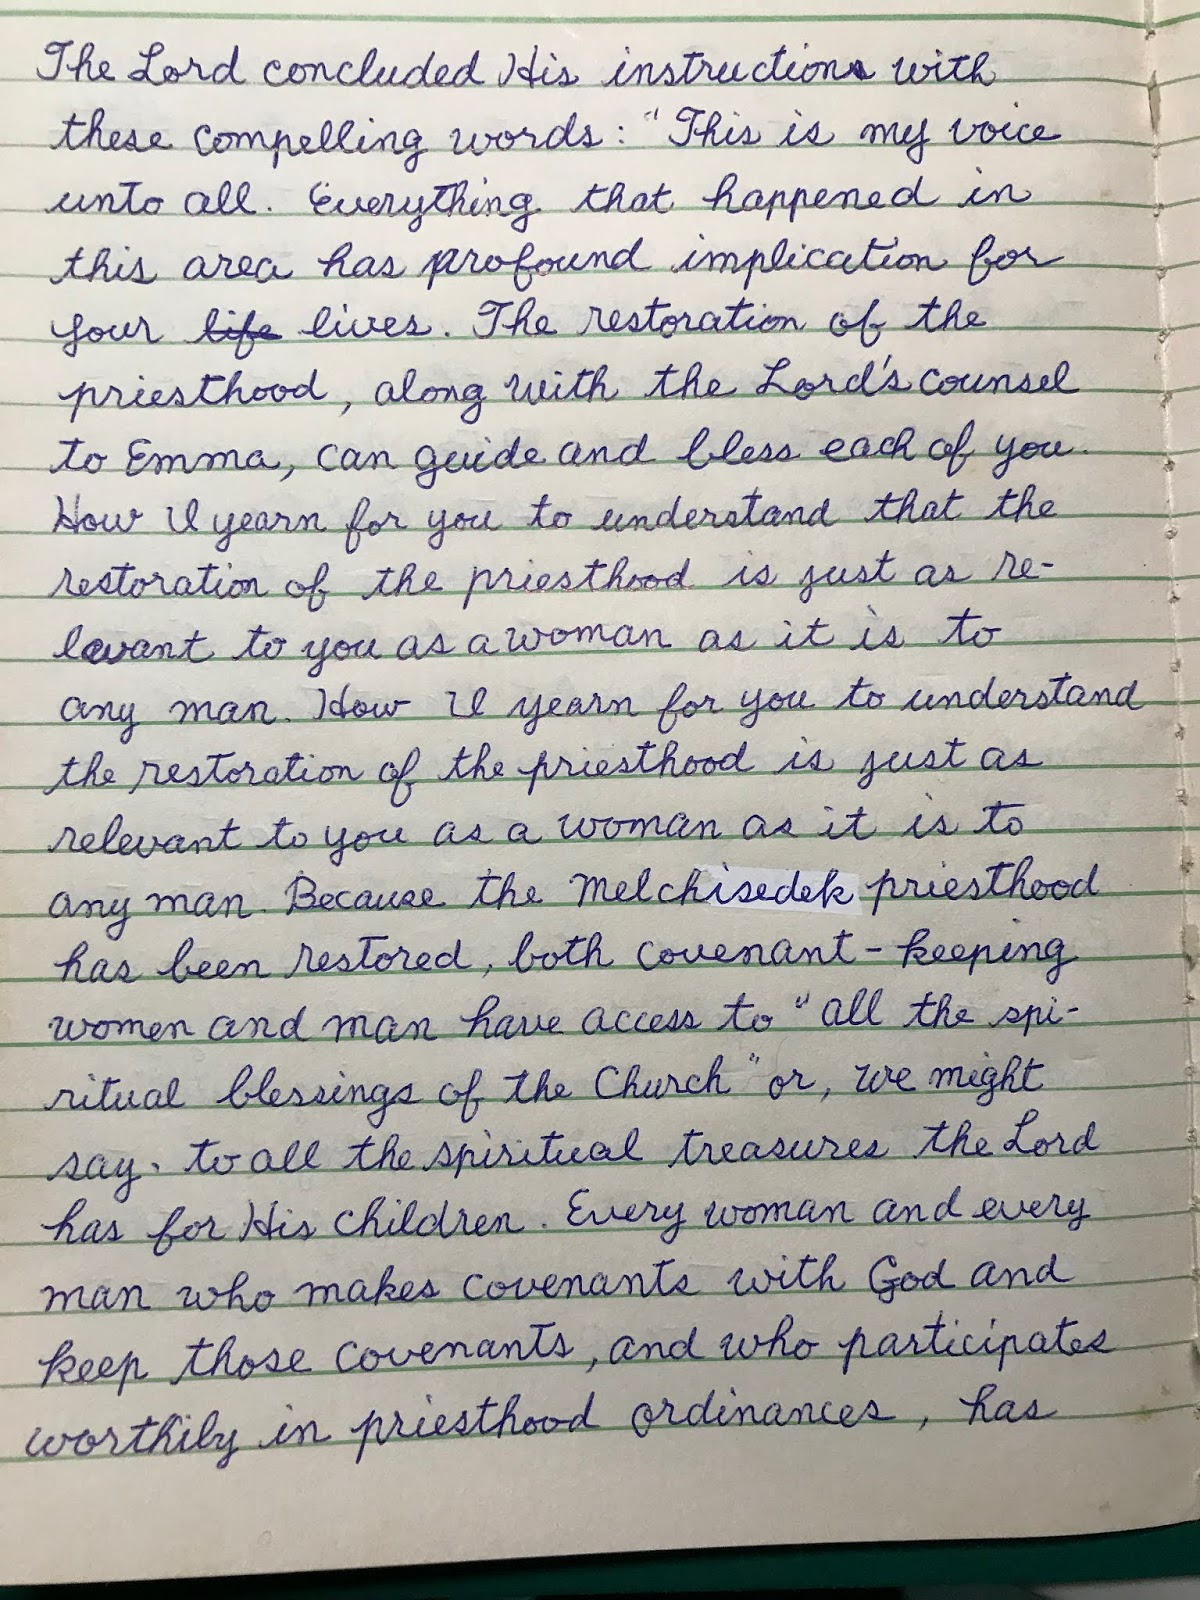 The Lord concluded His instructions with
these compelling words: "This is my voice
unto all. Everything that happened in
this area has profound implication for
your life lives. The restoration of the
priesthood, along with the Lord's counsel
to Emma, can guide and bless each of you.
How I yearn for you to understand that the
restoration of the priesthood is just as re-
levant to you as a woman as it is to
any man. How I yearn for you to understand
the restoration of the priesthood is just as
relevant to you as a woman as it is to
any man. Because the Melchisedek priesthood
has been restored, both covenant-keeping
women and man have access to "all the spi-
ritual blessings of the Church" or, we might
say. to all the spiritual treasures the Lord
has for His children. Every woman and every
man who makes covenants with God and
keep those covenants, and who participates
worthily in priesthood ordinances, has